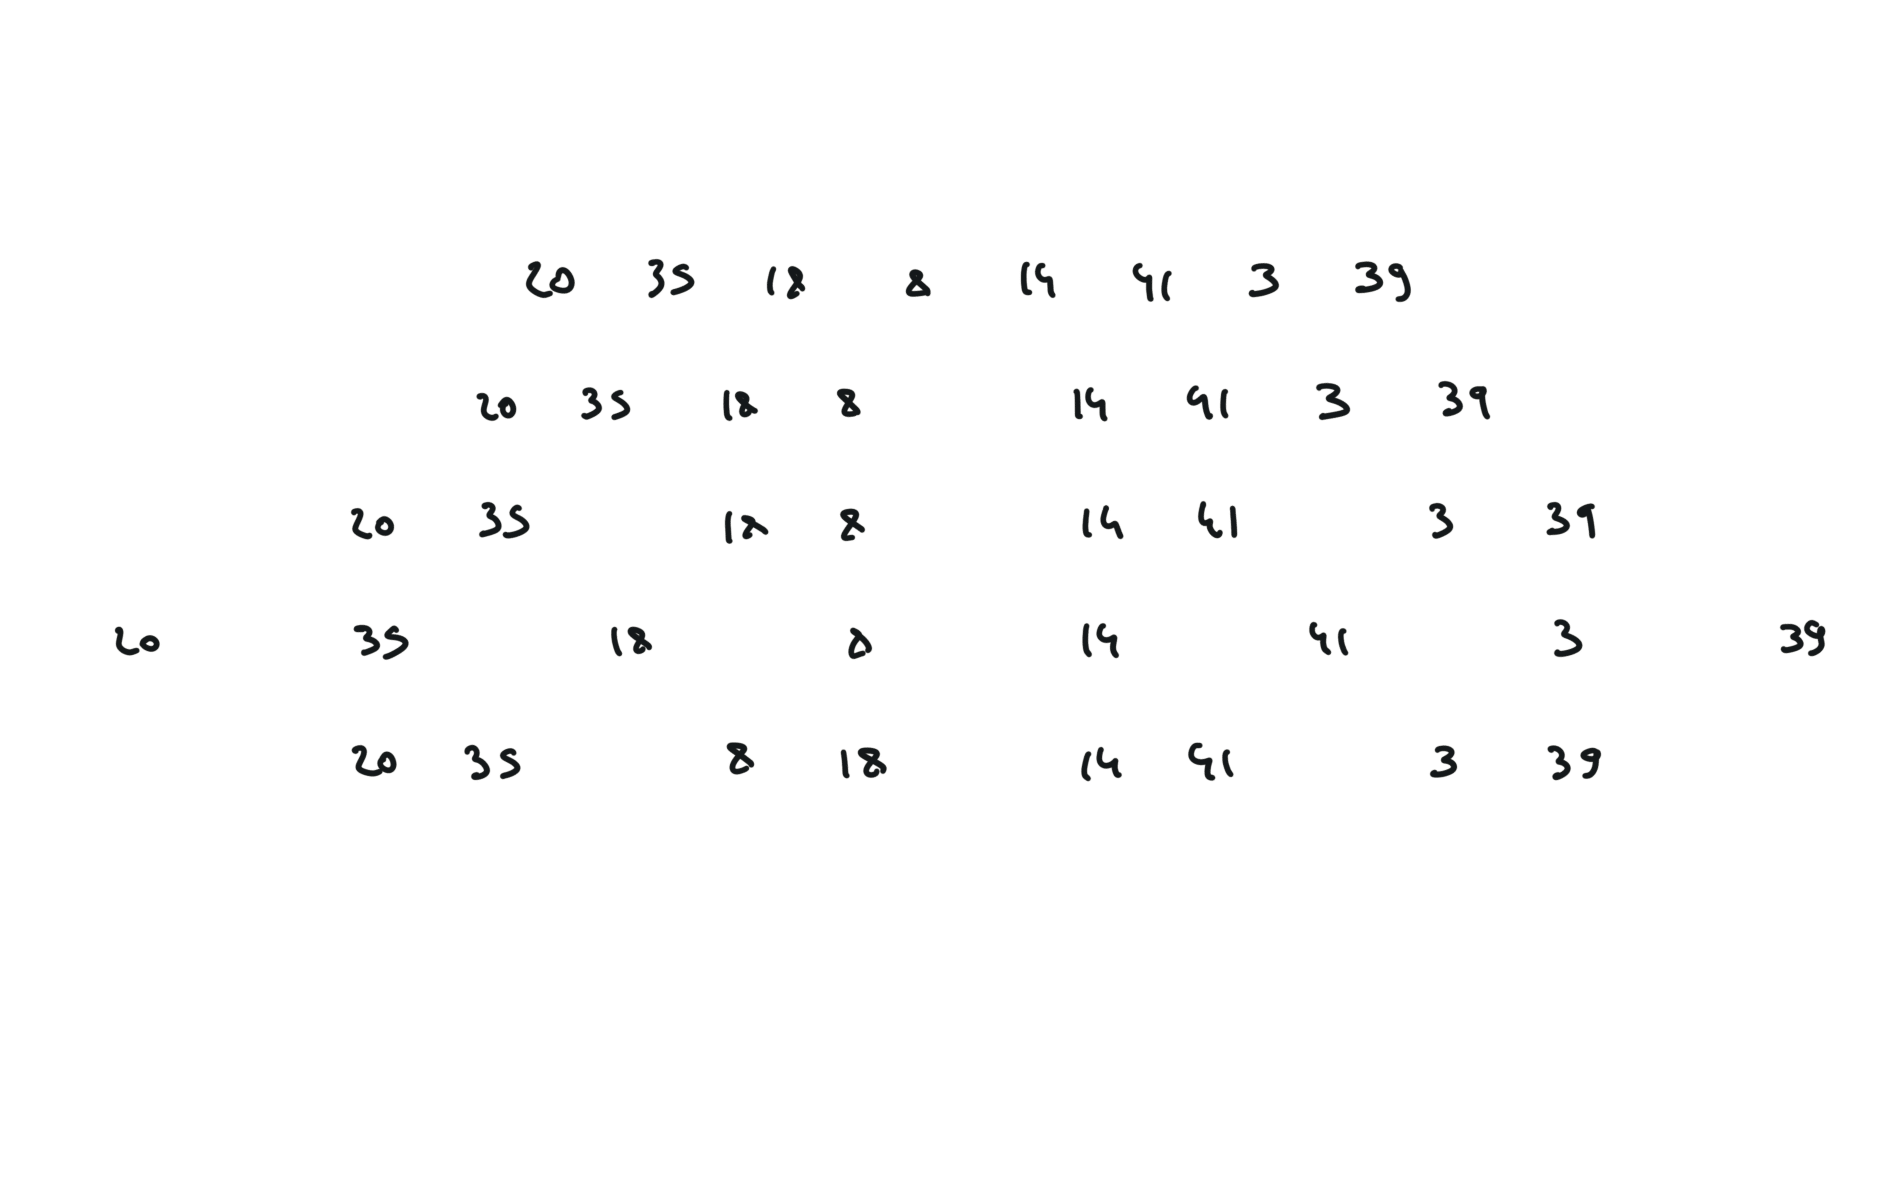 20 35 18 8 14 41 3 39
20 35 18 8 14 41 3 39
20 35 18 8 14 41 3 39
20 35 18 8 14 41 3 39
20 35 8 18 14 41 3 39